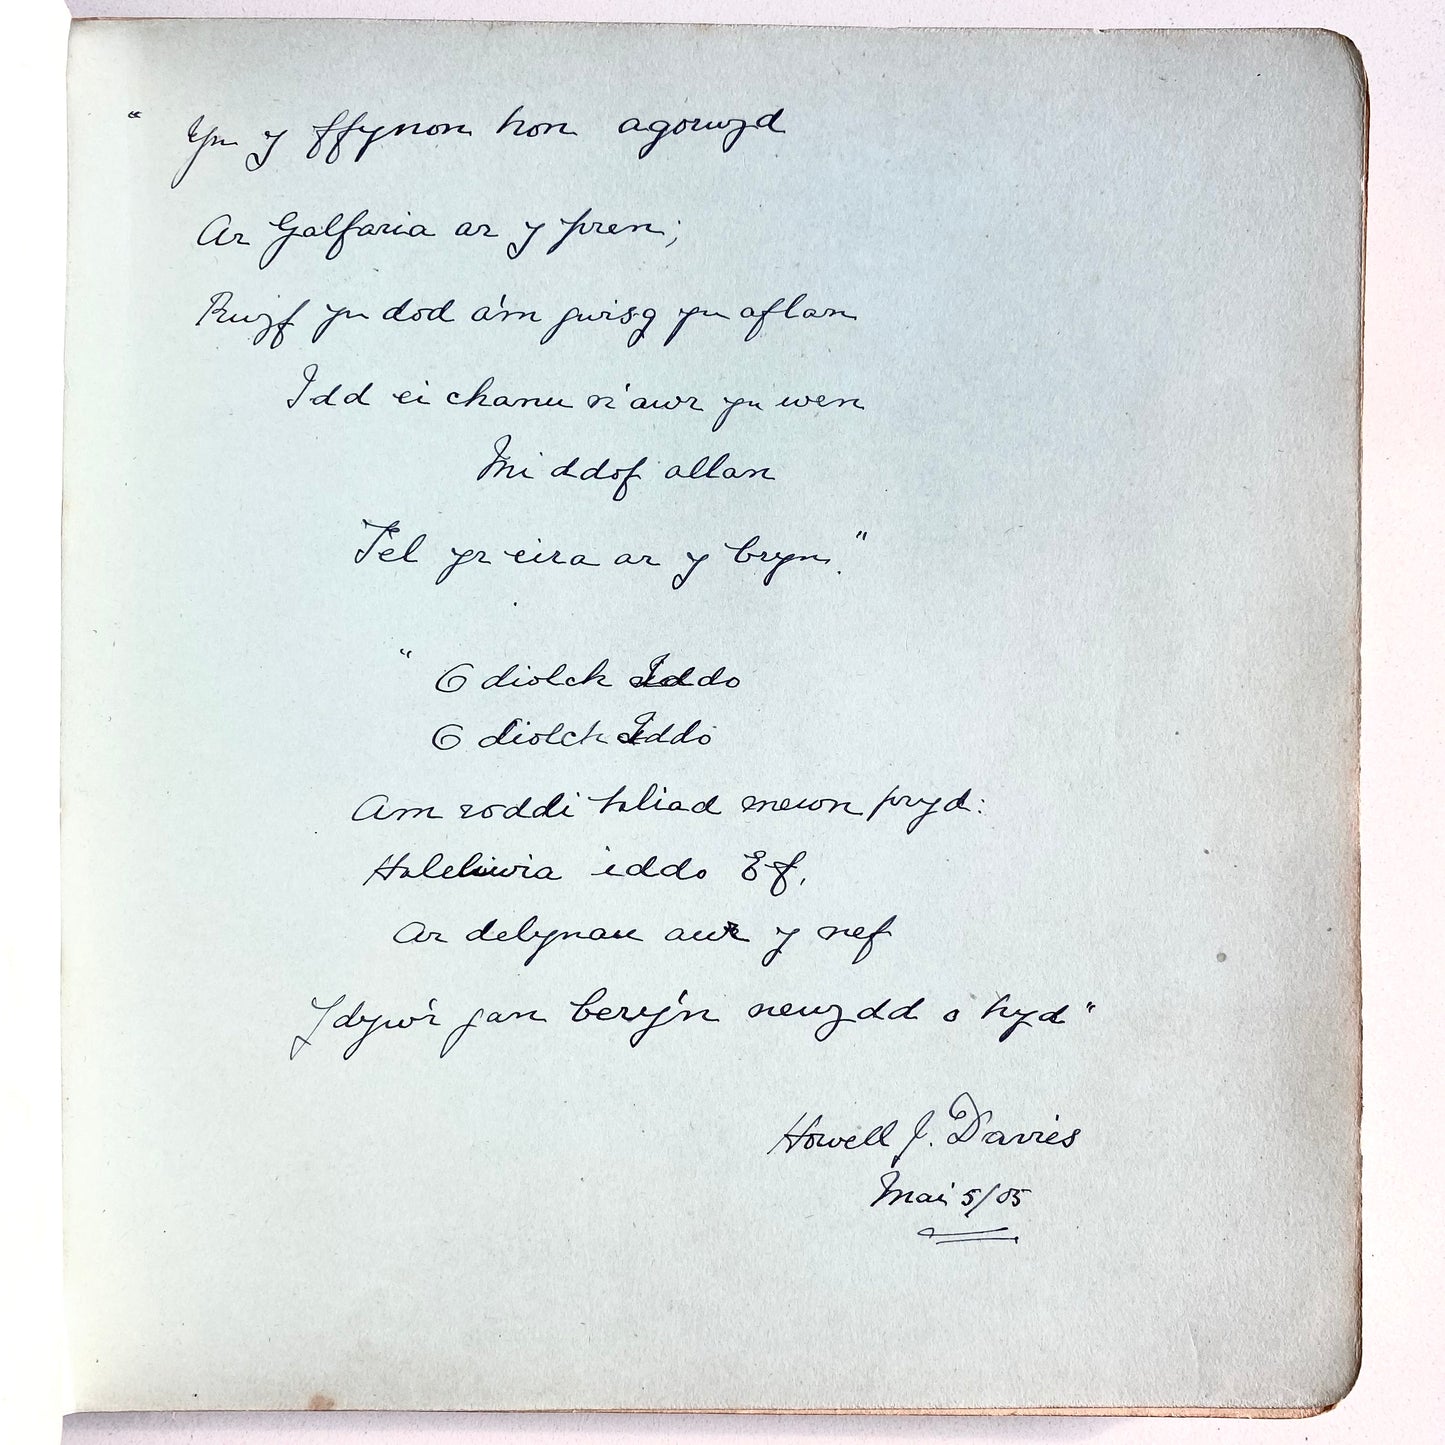 "Yn y ffynon hon agorwyd
Ar Galfaria ar y pren;
Rwyf yn dod a'm gwisg yn aflan
Idd ei chanu n'awr yn wen
Mi ddof allan
Fel yr eira ar y bryn."
"O diolch Iddo
O diolch Iddo
Am roddi haliad mewn pryd:
Haleluwia iddo Ef,
Ar delynau aur y nef
Ydyw'r gan bery'n newydd o hyd"
Howell J. Davies
Mai 5/05